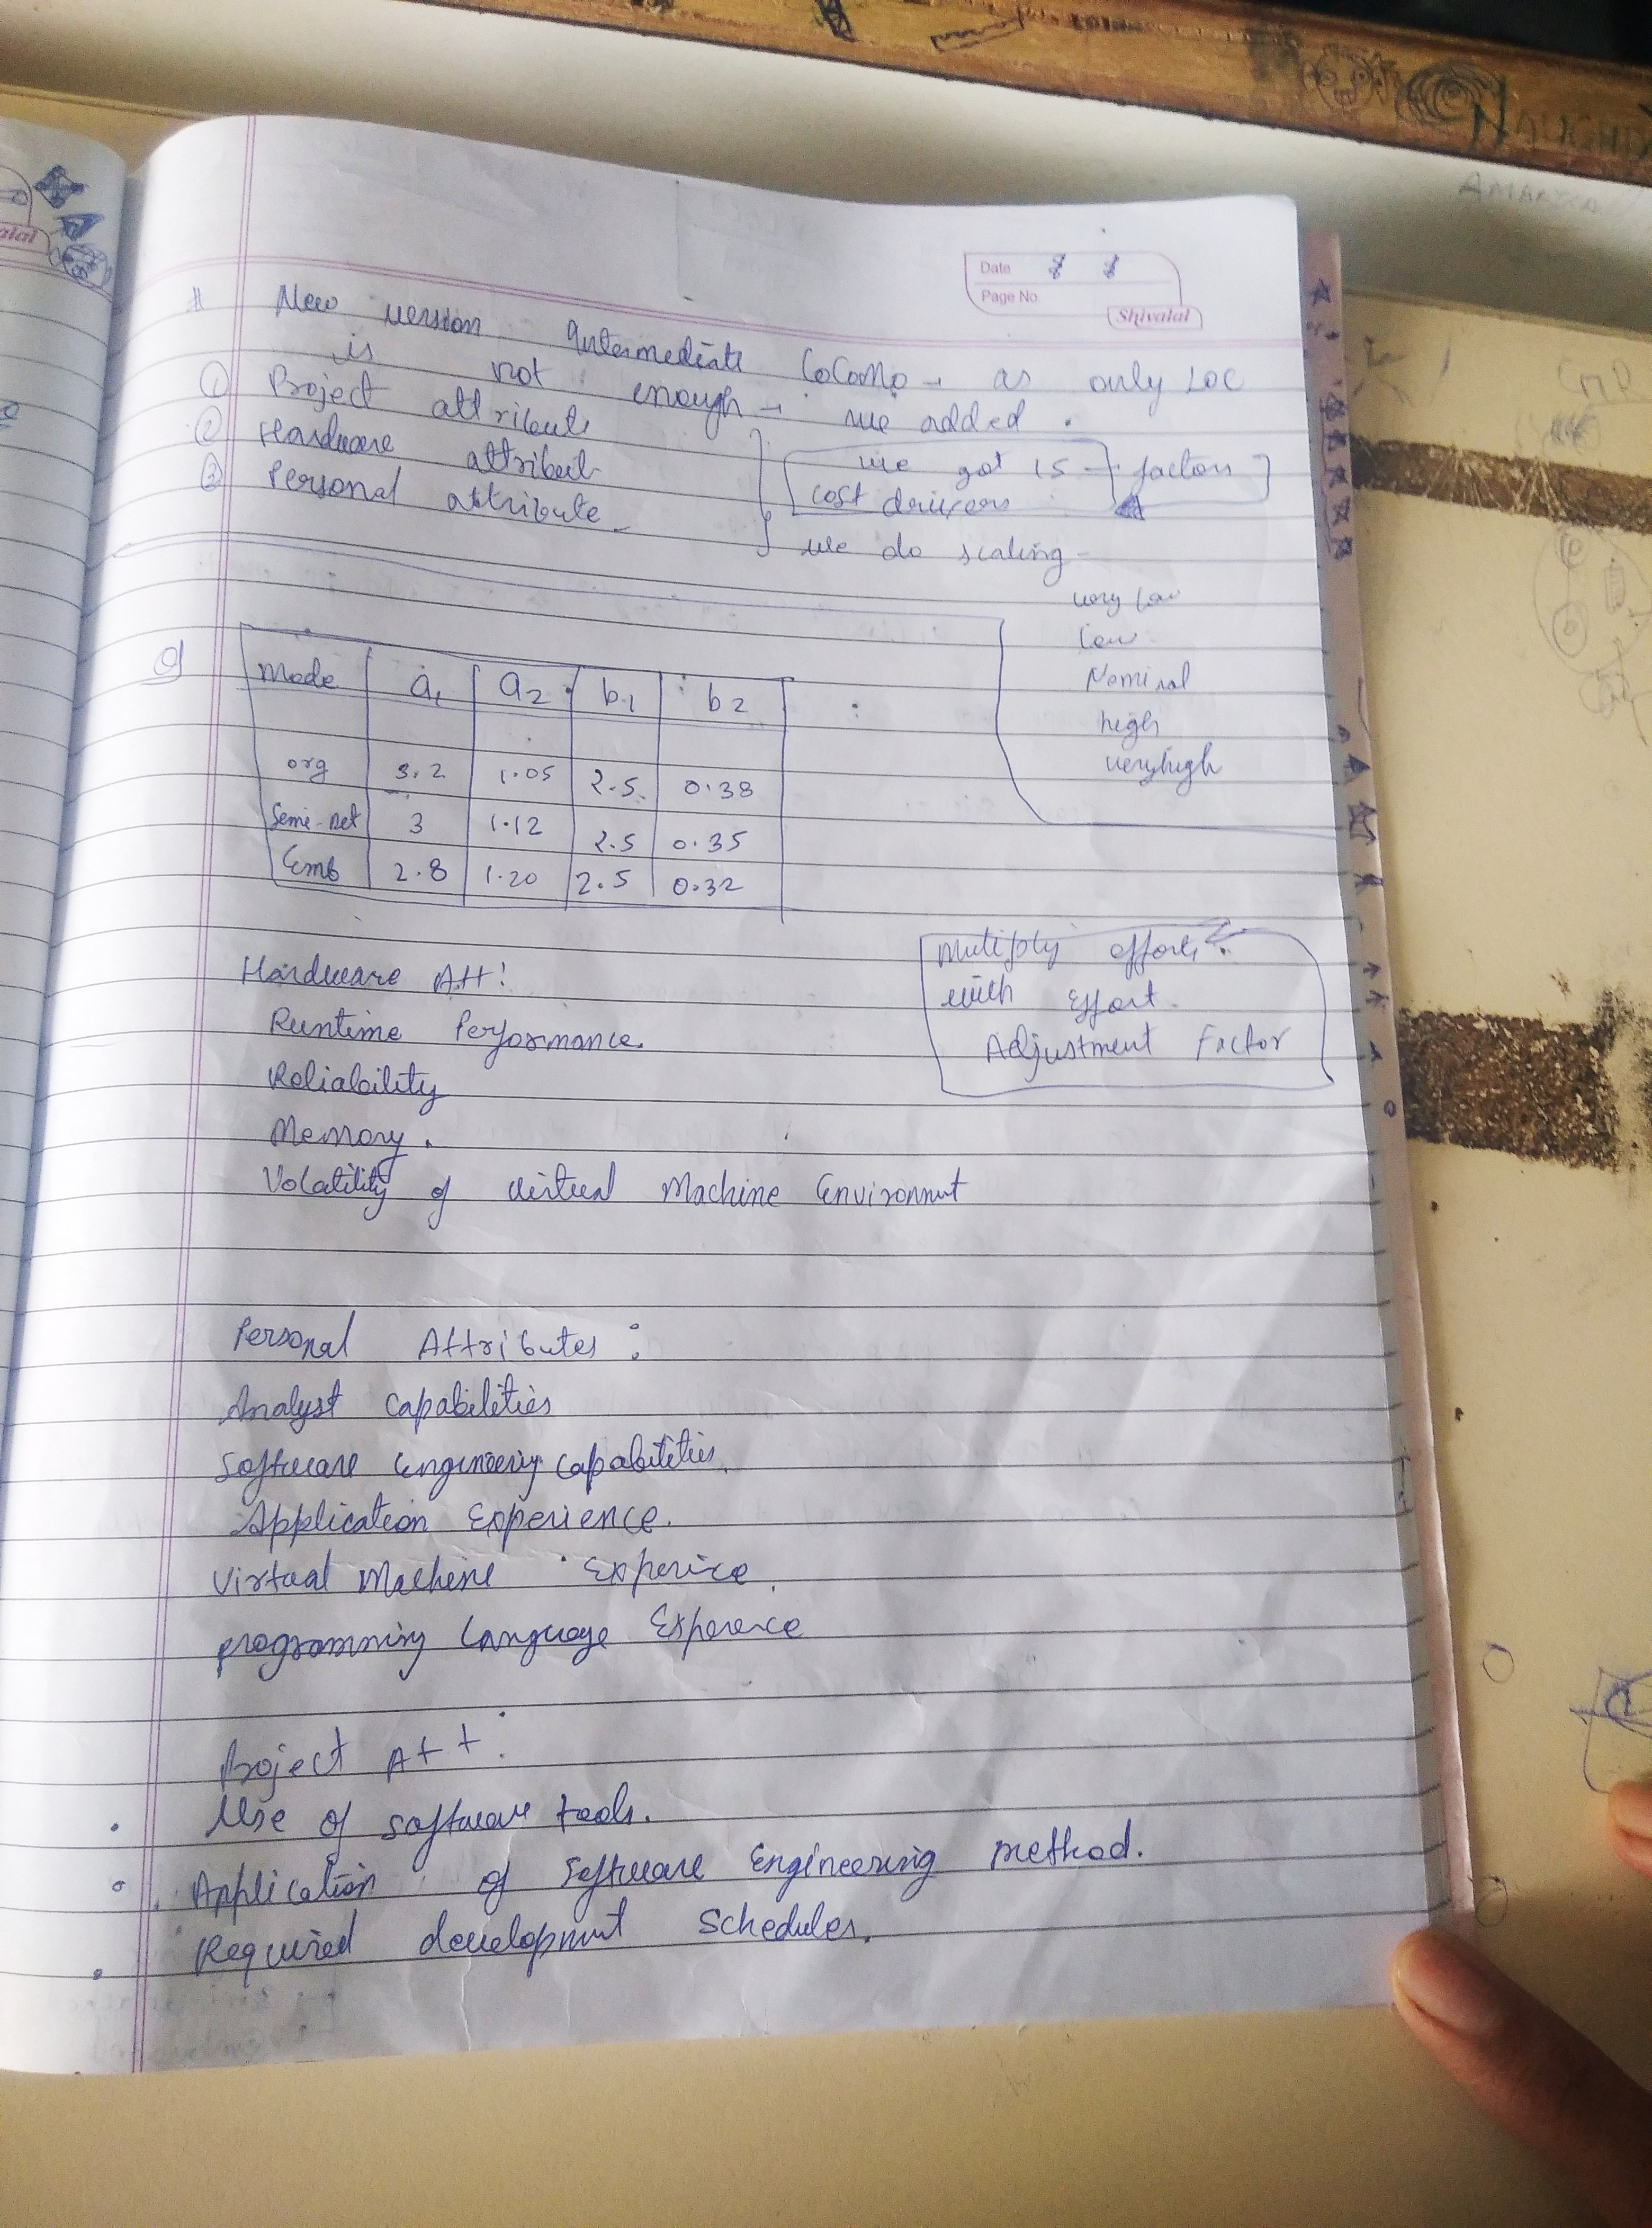 NAUGHTY
Date
Page No.
Shivalal
# New version Intermediate CoCoMo → as only LOC
is not enough → we added.
① Project attribute
② Hardware attribut
③ Personal attribute
we got 15 factors
cost drivers
we do scaling -
very low
low
Nominal
high
very high
Q
Mode a1 a2 b1 b2
org 3.2 1.05 2.5 0.38
Semi-Det 3 1.12 2.5 0.35
Emb 2.8 1.20 2.5 0.32
Multiply efforts
with Effort
Adjustment Factor
Hardware Att:
Runtime Performance.
Reliability
Memory.
Volatility of virtual Machine Environmnt
Personal Attributes:
Analyst Capabilities
Software Engineering Capabilities.
Application Experience.
Virtual Machine Experice.
programming Language Experence
Project Att:
• Use of software tools.
• Application of Software Engineering method.
• Required developmnt Schedules.